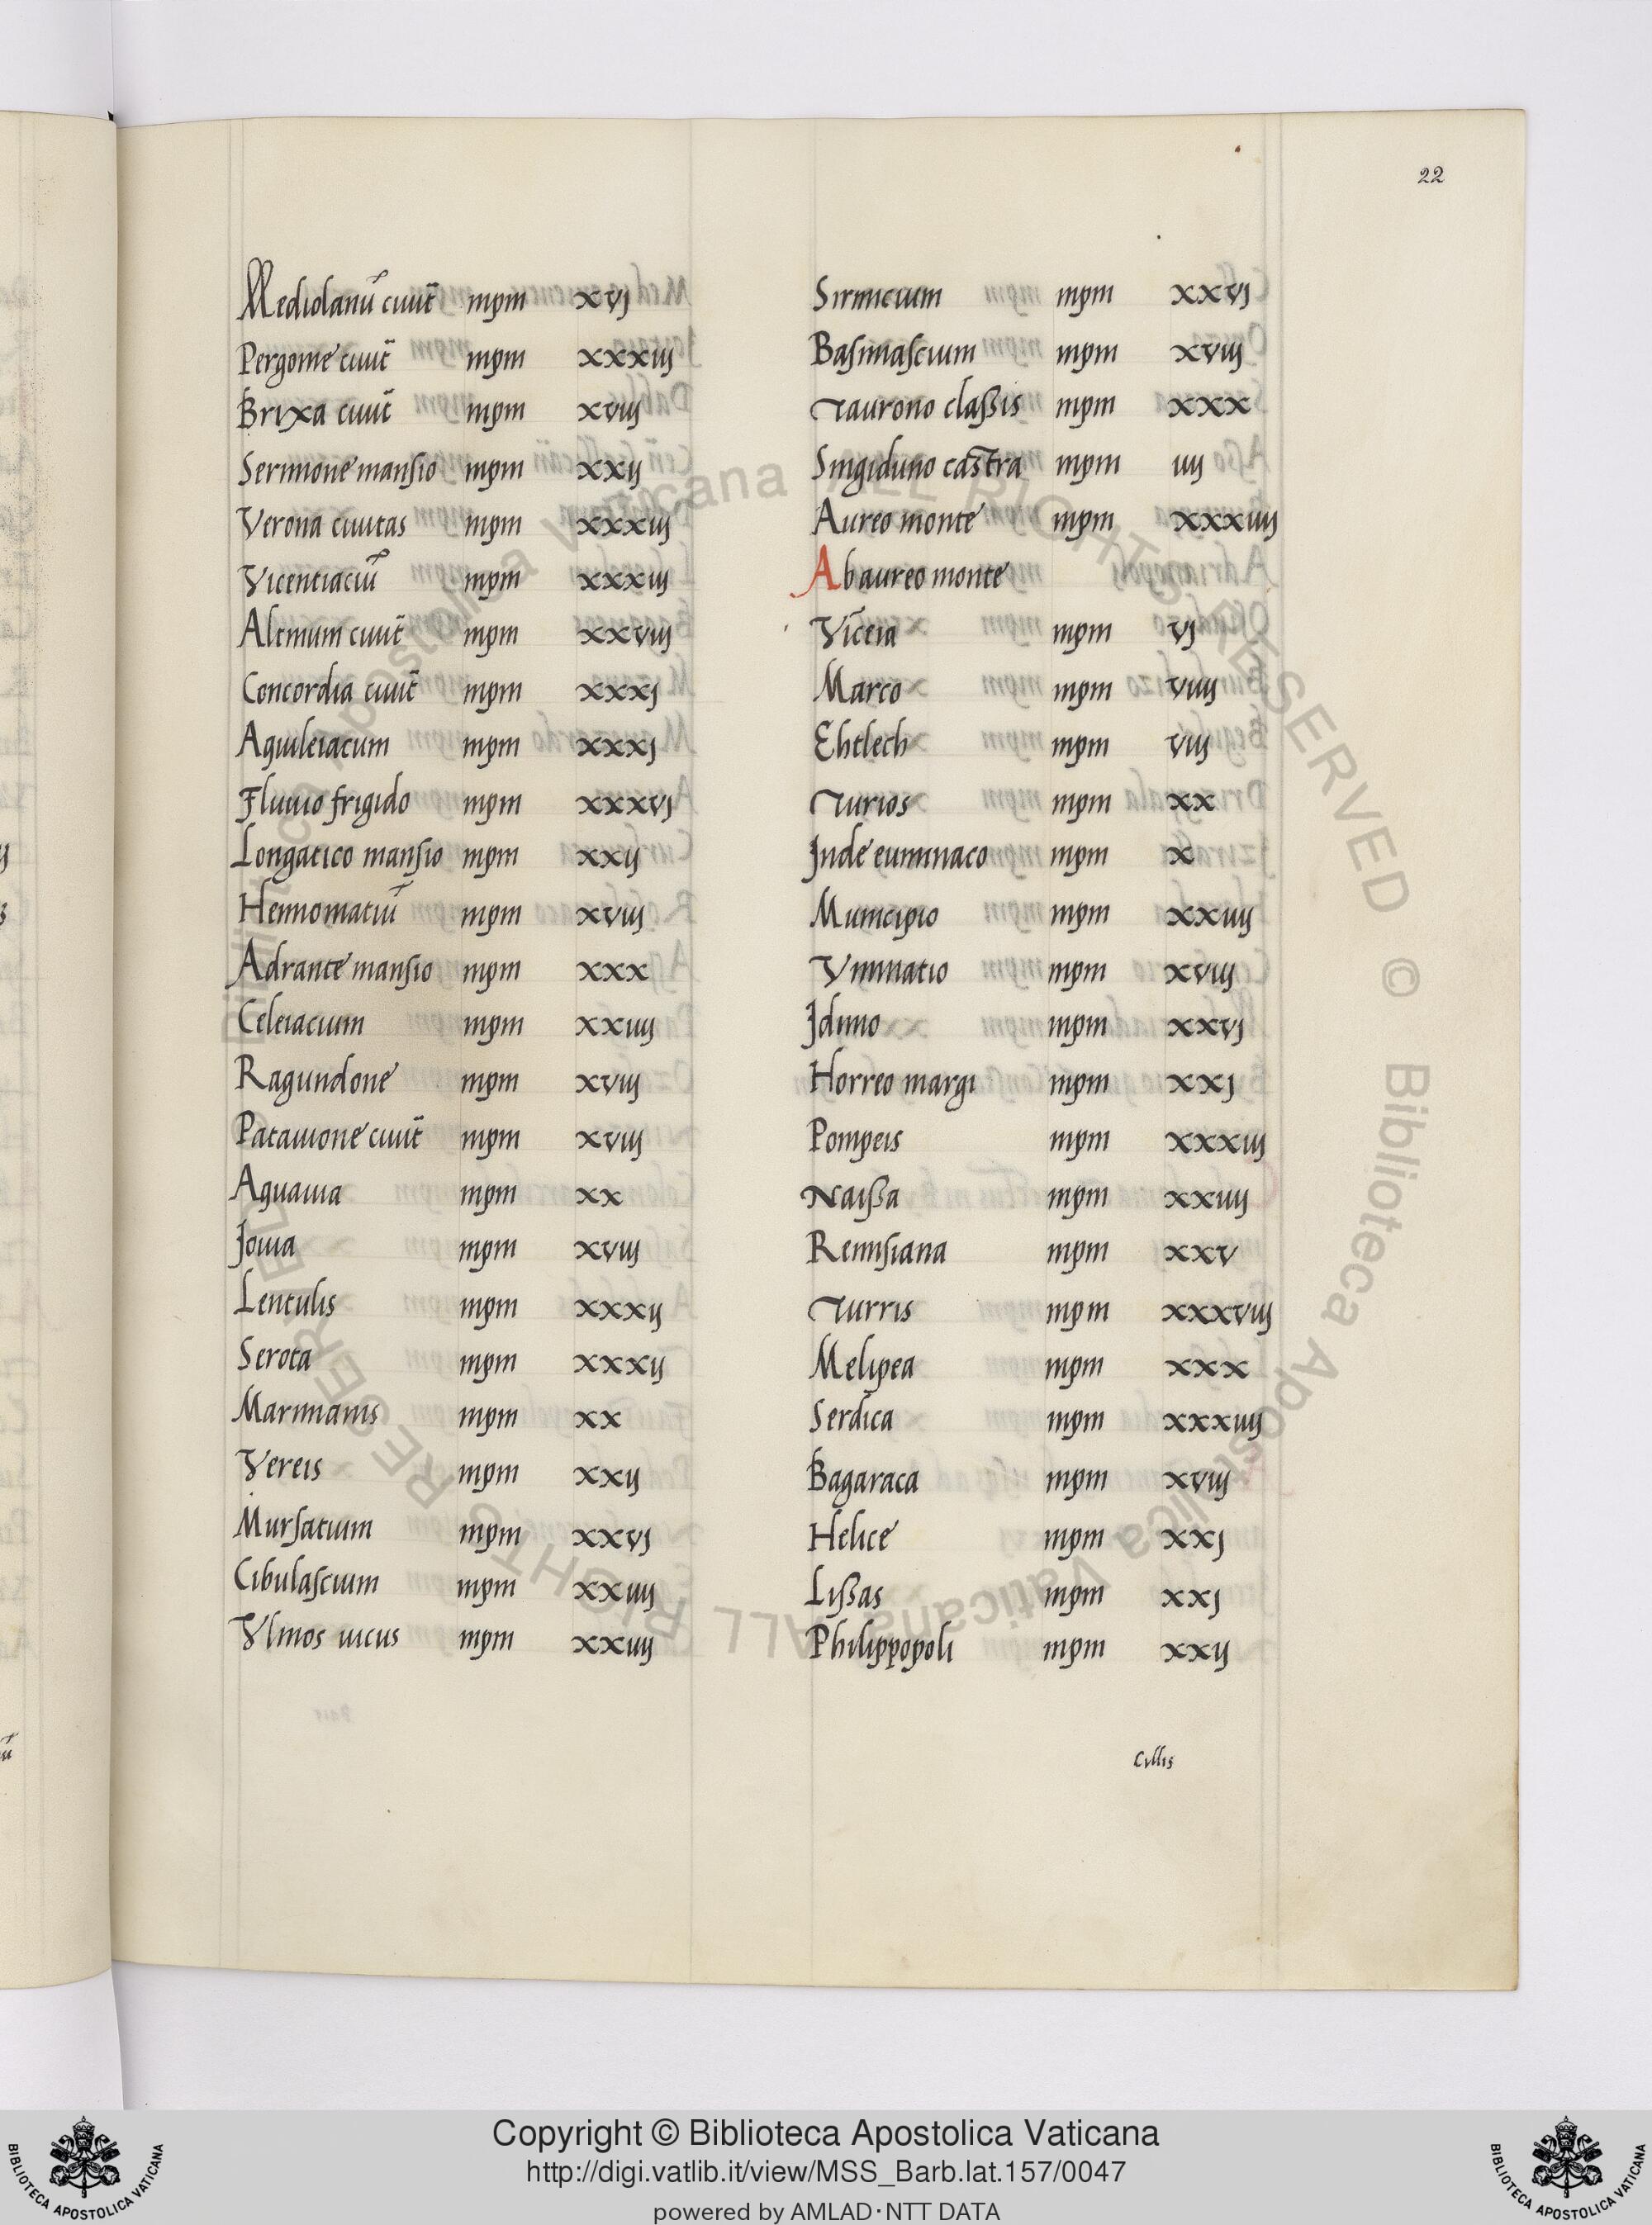 22
Mediolanū ciuit̄ mpm xvj
Pergome ciuit̄ mpm xxxiij
Brixa ciuit̄ mpm xviij
Sermione mansio mpm xxij
Verona ciuitas mpm xxxiij
Vicentiaciū mpm xxxiij
Altinum ciuit̄ mpm xxviij
Concordia ciuit̄ mpm xxxj
Aquileiacum mpm xxxj
Fluuio frigido mpm xxxvj
Longatico mansio mpm xxij
Hennomatiū mpm xviij
Adrante mansio mpm xxx
Celeiacium mpm xxiiij
Ragundone mpm xviij
Patauione ciuit̄ mpm xviij
Aquauia mpm xx
Jouia mpm xviij
Lentulis mpm xxxij
Serota mpm xxxij
Marimanis mpm xx
Vereis mpm xxij
Mursatium mpm xxvj
Cibulascium mpm xxiiij
Vlmos uicus mpm xxiiij
Sirmicium mpm xxvj
Basimascium mpm xviij
Taurono classis mpm xxx
Singiduno castra mpm iiij
Aureo monte mpm xxxiiij
Ab aureo monte
Vīceia mpm vj
Marco mpm viiij
Ehtlech mpm viij
Turios mpm xx
Inde euminaco mpm x
Municipio mpm xxiiij
Vminatio mpm xviij
Idimo mpm xxvj
Horreo margi mpm xxj
Pompeis mpm xxxiij
Naissa mpm xxiiij
Remisiana mpm xxv
Turris mpm xxxviij
Melipea mpm xxx
Serdica mpm xxxiiij
Bagaraca mpm xviij
Helice mpm xxj
Lissas mpm xxj
Philippopoli mpm xxij
Cillis
Copyright © Biblioteca Apostolica Vaticana
http://digi.vatlib.it/view/MSS_Barb.lat.157/0047
powered by AMLAD·NTT DATA
BIBLIOTECA APOSTOLICA VATICANA
BIBLIOTECA APOSTOLICA VATICANA